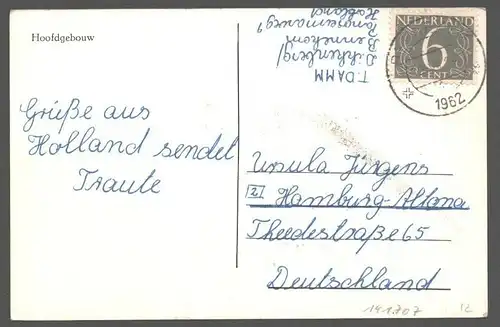 Hoofdgebouw
Grüße aus
Holland sendet
Traute
T. DAMM
Dikkenberg/
Bennekom
Holland
NEDERLAND
6
CENT
1962
Ursula Jürgens
2 Hamburg-Altona
Theedestraße 65
Deutschland
141707
12